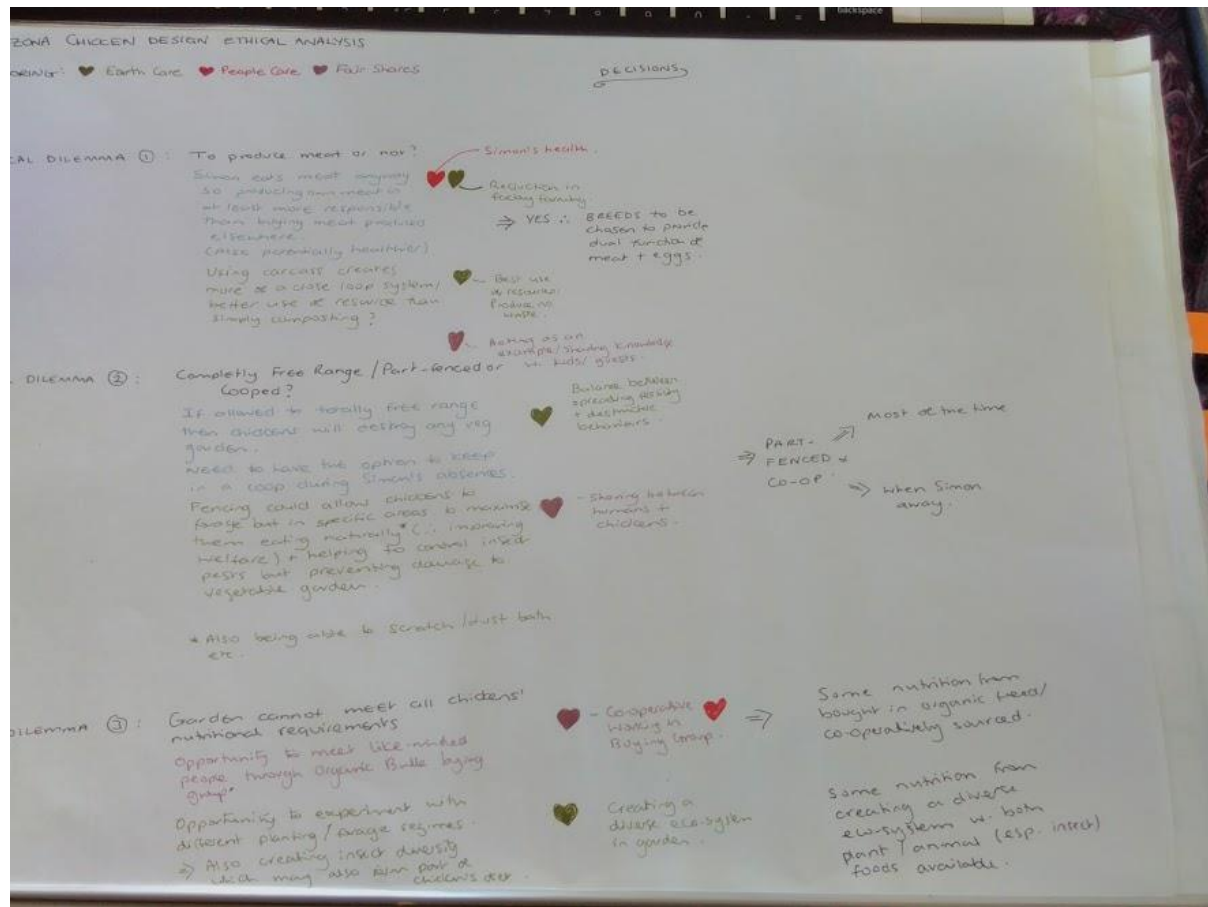 ZONA CHICKEN DESIGN ETHICAL ANALYSIS
Earth Care People Care Fair Shares
DECISIONS
AL DILEMMA ①: To produce meat or not?
Simon eats meat anyway
so producing own meat is
at least more responsible
than buying meat produced
elsewhere.
(Also potentially healthier).
Using carcass creates
more of a close loop system/
better use of resource than
simply composting?
Simon's health.
Reduction in
factory farming
⇒ YES ∴ BREEDS to be
chosen to provide
dual function of
meat + eggs.
Best use
of resources/
Produce no
waste.
Acting as an
example/sharing knowledge
w. kids/guests.
DILEMMA ②: Completly Free Range/Part-fenced or
Cooped?
If allowed to totally free range
then chickens will destroy any veg
garden.
Need to have the option to keep
in a coop during Simon's absences.
Fencing could allow chickens to
forage but in specific areas to maximise
them eating naturally* (∴ improving
welfare) + helping to control insect
pests but preventing damage to
vegetable garden.
* Also being able to scratch/dust bath
etc.
Balance between
spreading fertility
+ destructive
behaviours.
- Sharing between
humans +
chickens.
⇒ PART-
FENCED +
CO-OP.
⇒ Most of the time
⇒ When Simon
away.
DILEMMA ③: Garden cannot meet all chickens'
nutritional requirements
Opportunity to meet like-minded
people through Organic Bulk buying
group*
Opportunity to experiment with
different planting/forage regimes.
⇒ Also creating insect diversity
which may also form part of
chicken's diet.
- Co-operative
working in
Buying Group.
⇒ Some nutrition from
bought in organic feed/
co-operatively sourced.
Creating a
diverse eco-system
in garden.
Some nutrition from
creating a diverse
eco-system w. both
plant/animal (esp. insect)
foods available.
backspace